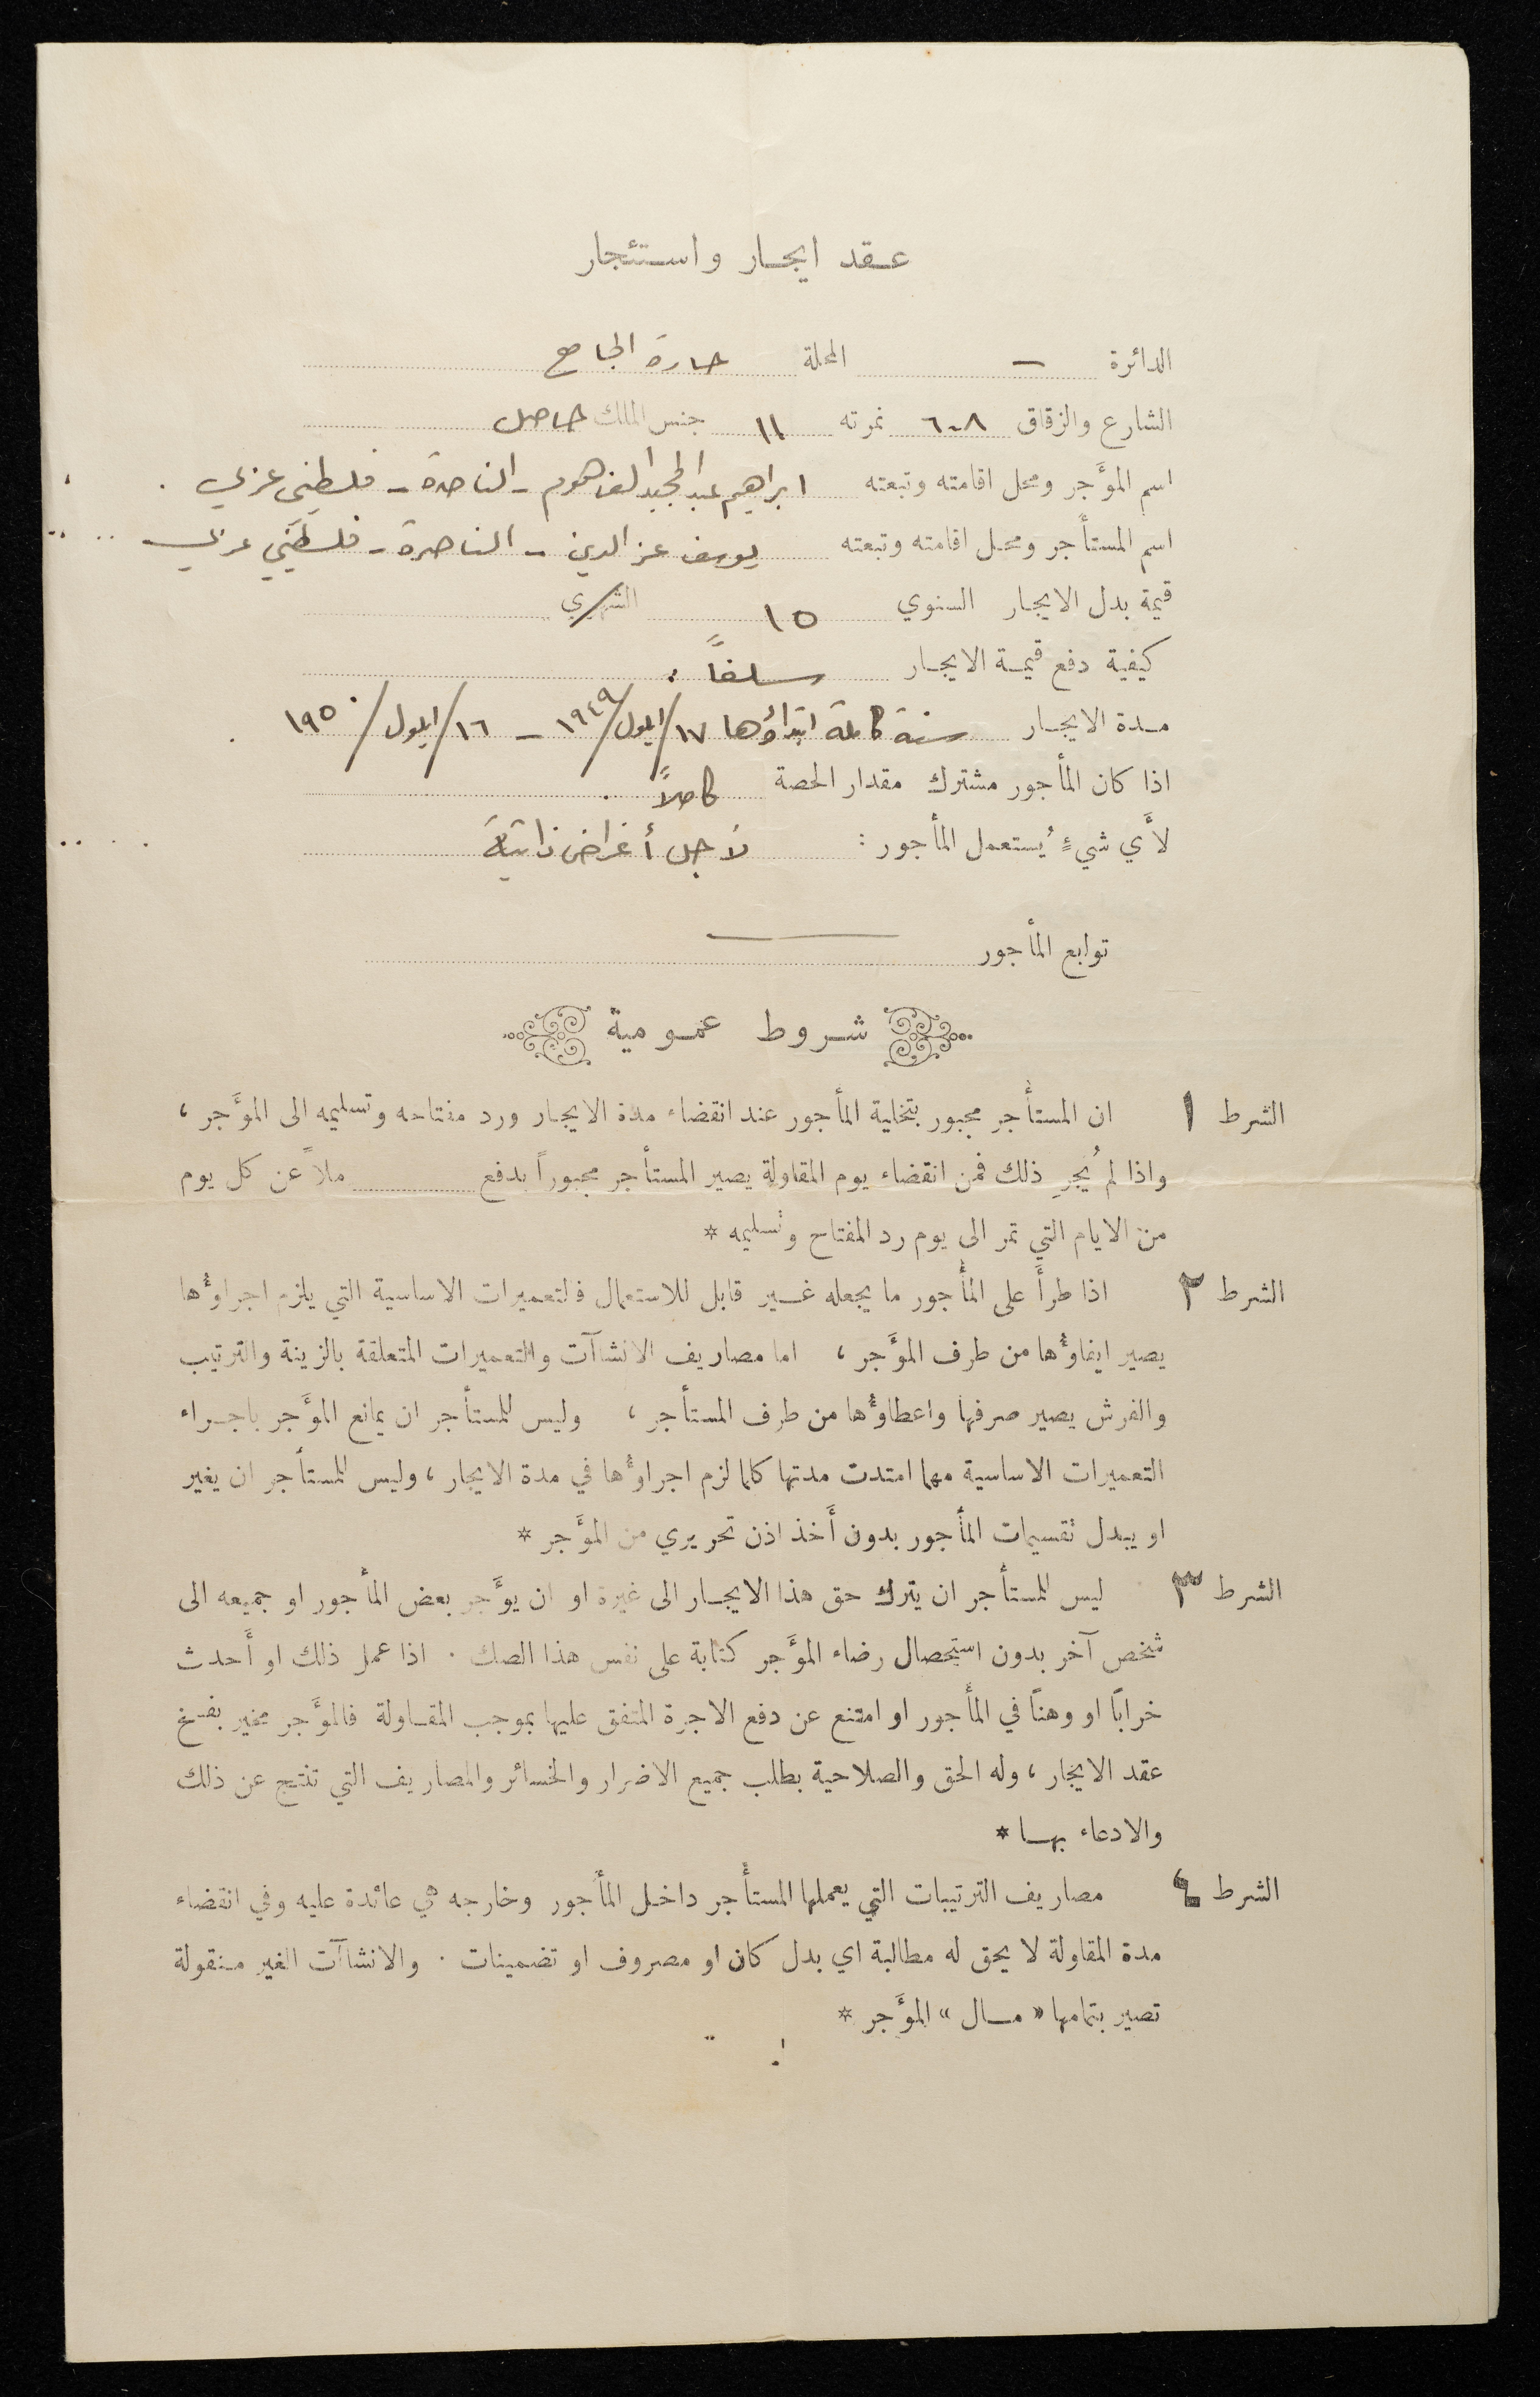 عقد ايجار واستئجار
الدائرة — المحلة حارة الجامع
الشارع والزقاق ٦٠٨ نمرته ١١ جنس الملك حاصل
اسم المؤَجر ومحل اقامته وتبعته ابراهيم عبد المجيد الفاهوم - الناصرة - فلسطيني عربي .
اسم المستأجر ومحل اقامته وتبعته يوسف عز الدين - الناصرة - فلسطيني عربي
قيمة بدل الايجار السنوي ١٥ الشهري
كيفية دفع قيمة الايجار سلفاً :
مدة الايجار سنة كاملة ابتداؤها ١٧/ايلول/١٩٤٩ - ١٦/ايلول/١٩٥٠
اذا كان المأجور مشترك مقدار الحصة كاملاً .
لأَي شيءٍ يُستعمل المأجور : لاجل أغراض ذاتية
توابع المأجور ———
شروط عمومية
الشرط ١ ان المستأجر مجبور بتخلية المأجور عند انقضاء مدة الايجار ورد مفتاحه وتسليمه الى المؤَجر ،
واذا لم يُجرِ ذلك فمن انقضاء يوم المقاولة يصير المستأجر مجبوراً بدفع ملاً عن كل يوم
من الايام التي تمر الى يوم رد المفتاح وتسليمه *
الشرط ٢ اذا طرأَ على المأجور ما يجعله غير قابل للاستعمال فالتعميرات الاساسية التي يلزم اجراؤُها
يصير ايفاؤُها من طرف المؤَجر ، اما مصاريف الانشاآت والتعميرات المتعلقة بالزينة والترتيب
والفرش يصير صرفها واعطاؤُها من طرف المستأجر ، وليس للمستأجر ان يمانع المؤَجر باجراء
التعميرات الاساسية مهما امتدت مدتها كلما لزم اجراؤُها في مدة الايجار ، وليس للمستأجر ان يغير
او يبدل تقسيمات المأجور بدون أَخذ اذن تحريري من المؤَجر *
الشرط ٣ ليس للمستأجر ان يترك حق هذا الايجار الى غيرة او ان يؤَجر بعض المأجور او جميعه الى
شخص آخر بدون استحصال رضاء المؤَجر كتابة على نفس هذا الصك . اذا عمل ذلك او أَحدث
خراباً او وهناً في المأجور او امتنع عن دفع الاجرة المتفق عليها بموجب المقاولة فالمؤَجر مخير بفسخ
عقد الايجار ، وله الحق والصلاحية بطلب جميع الاضرار والخسائر والمصاريف التي تنتج عن ذلك
والادعاء بها *
الشرط ٤ مصاريف الترتيبات التي يعملها المستأجر داخل المأجور وخارجه هي عائدة عليه وفي انقضاء
مدة المقاولة لا يحق له مطالبة اي بدل كان او مصروف او تضمينات . والانشاآت الغير منقولة
تصير بتمامها « مال » المؤَجر *